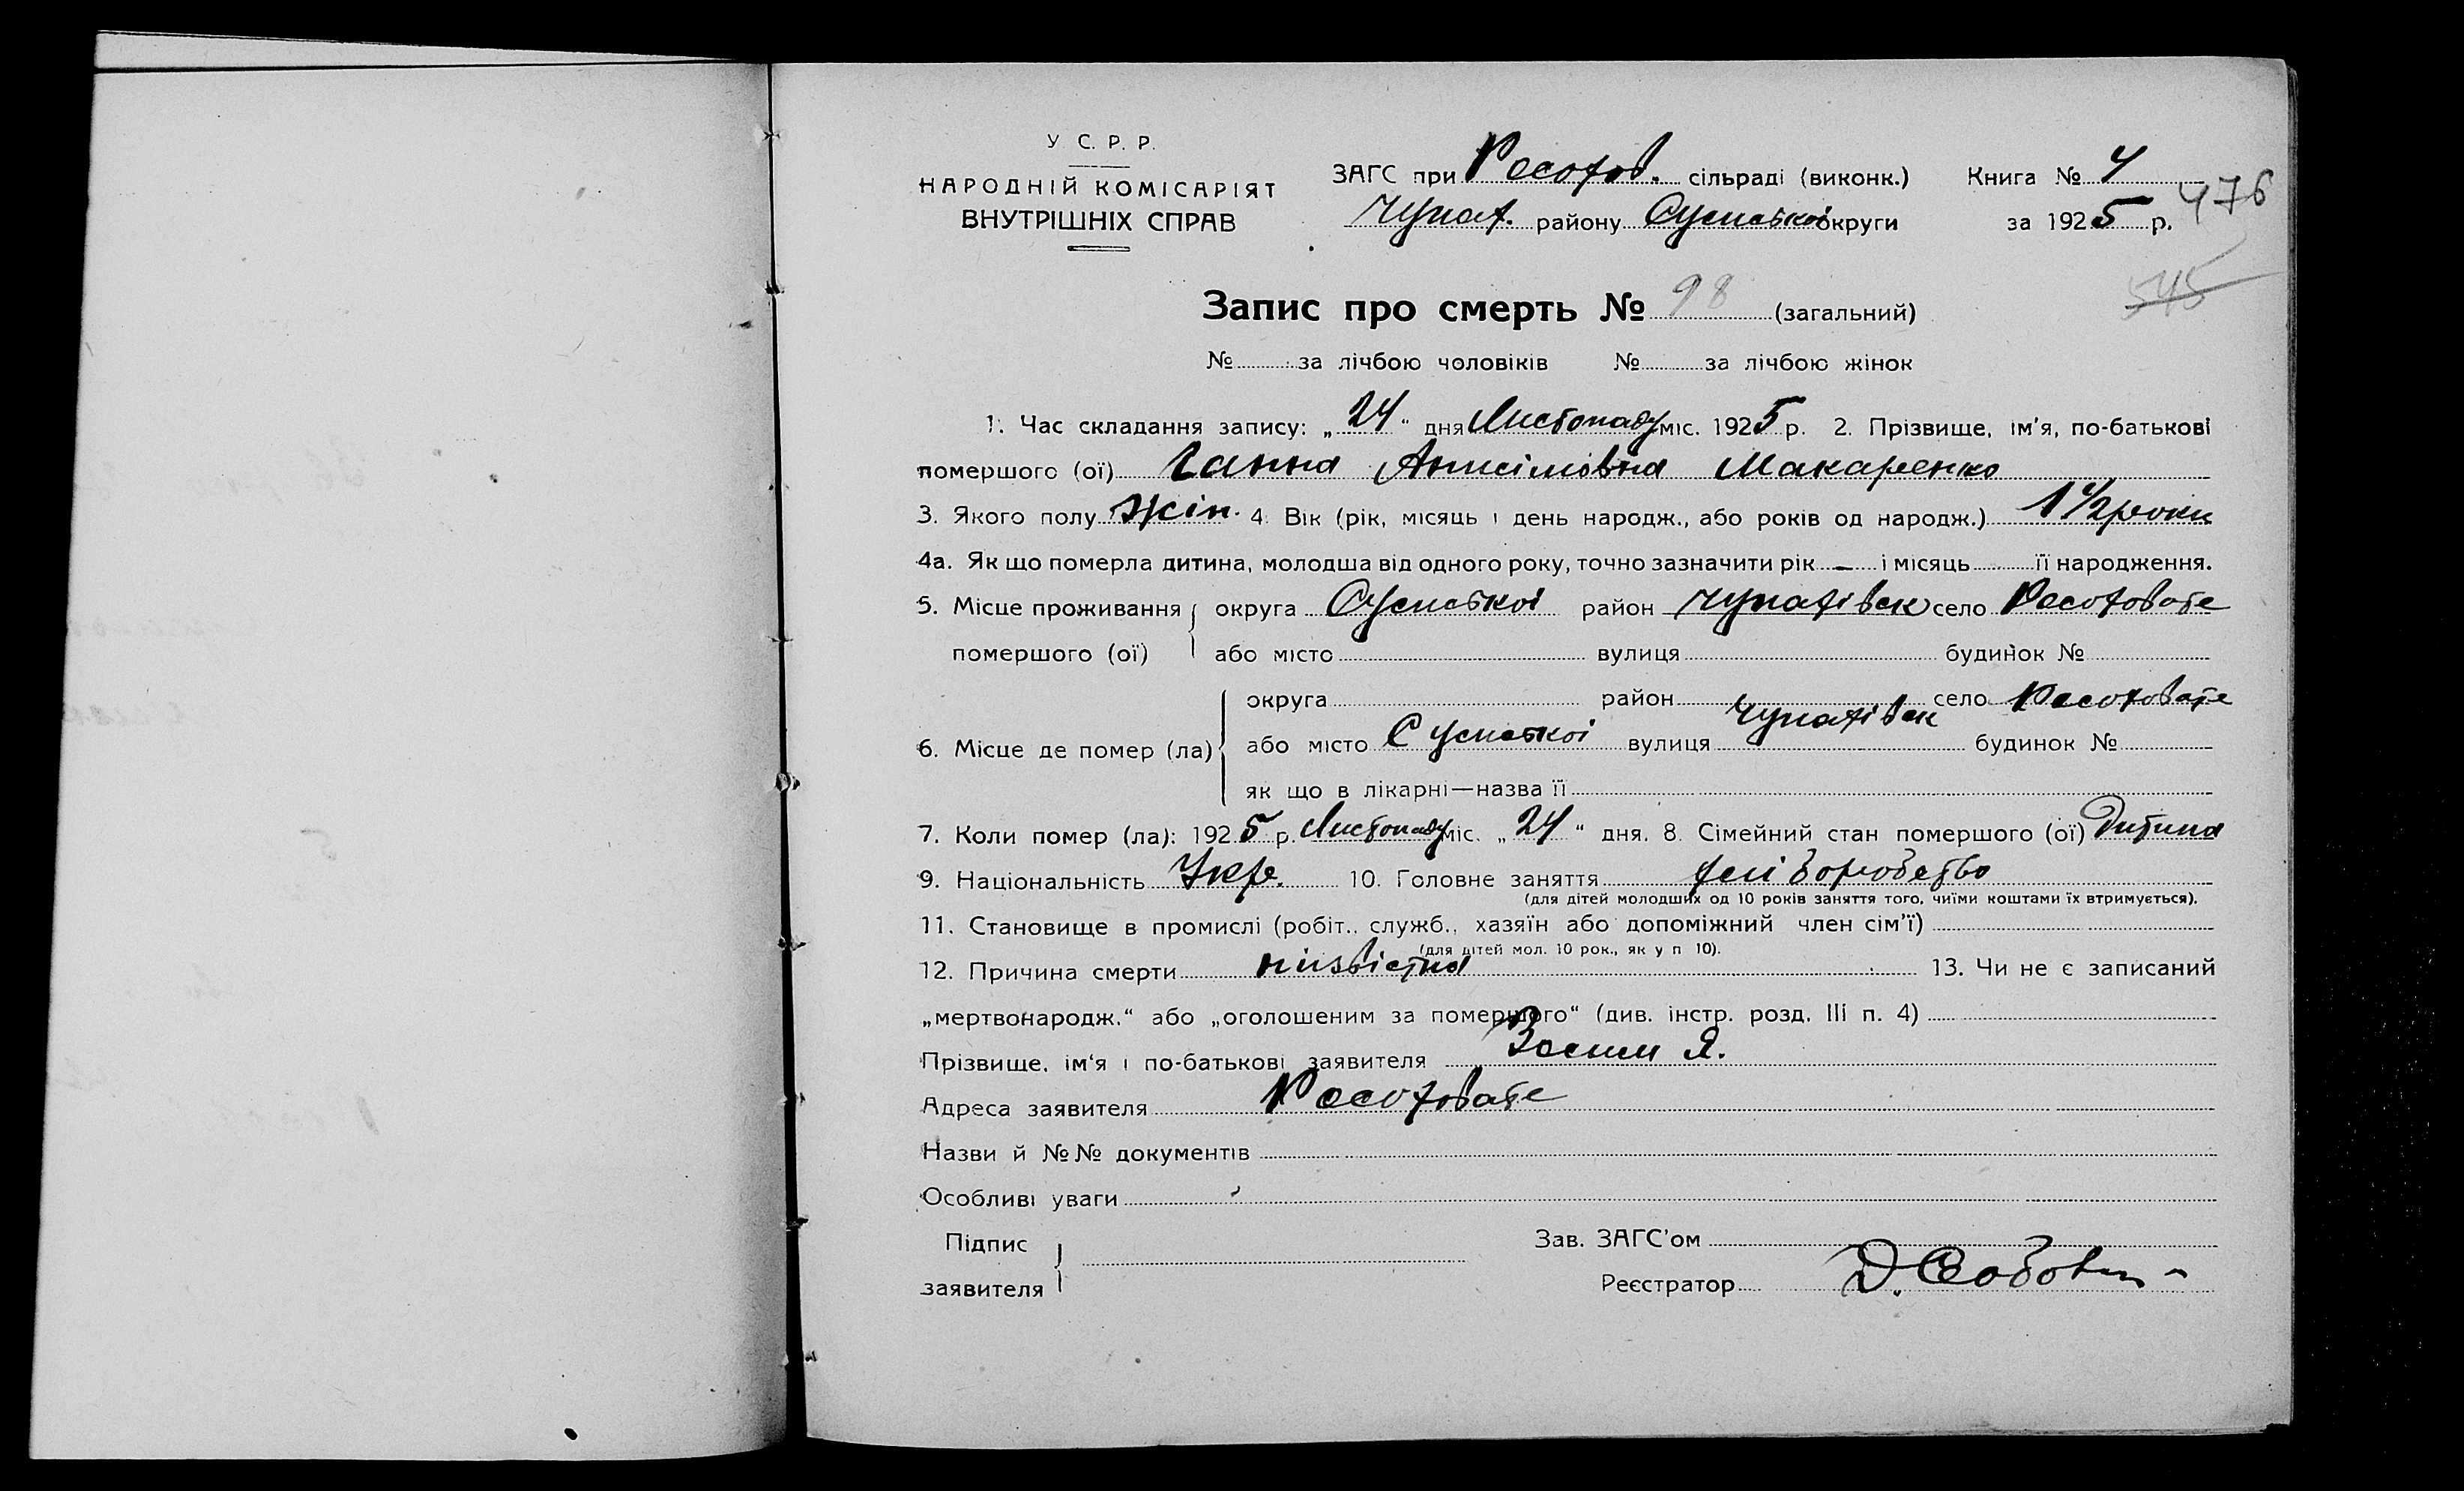 У С. Р. Р.
НАРОДНІЙ КОМІСАРІЯТ
ВНУТРІШНІХ СПРАВ
ЗАГС при Росохов. сільраді (виконк.) Книга № 4
Чупах. району Сумської округи за 1925 р. 476
545
Запис про смерть № 98 (загальний)
№ за лічбою чоловіків № за лічбою жінок
1. Час складання запису: „24“ дня Листопаду міс. 1925 р. 2. Прізвище, ім'я, по-батькові
помершого (ої) Ганна Анисімовна Макаренко
3. Якого полу жін. 4. Вік (рік, місяць і день народж., або років од народж.) 1 1/2 роки
4а. Як що померла дитина, молодша від одного року, точно зазначити рік — і місяць її народження.
5. Місце проживання округа Сумської район Чупахівск село Росоховате
помершого (ої) або місто вулиця будинок №
округа район Чупахівск село Росоховате
6. Місце де помер (ла) або місто Сумської вулиця будинок №
як що в лікарні—назва її
7. Коли помер (ла): 1925 р. Листопаду міс. „24“ дня. 8. Сімейний стан помершого (ої) Дитина
9. Національність Укр. 10. Головне заняття хліборобство
(для дітей молодших од 10 років заняття того, чиїми коштами їх втримується).
11. Становище в промислі (робіт., служб., хазяїн або допоміжний член сім'ї)
(для дітей мол. 10 рок., як у п 10).
12. Причина смерти низвістна 13. Чи не є записаний
„мертвонародж.“ або „оголошеним за помершого“ (див. інстр. розд. III п. 4)
Прізвище, ім'я і по-батькові заявителя Я.
Адреса заявителя Росоховате
Назви й №№ документів
Особливі уваги
Підпис
заявителя
Зав. ЗАГС'ом
Реєстратор Д.